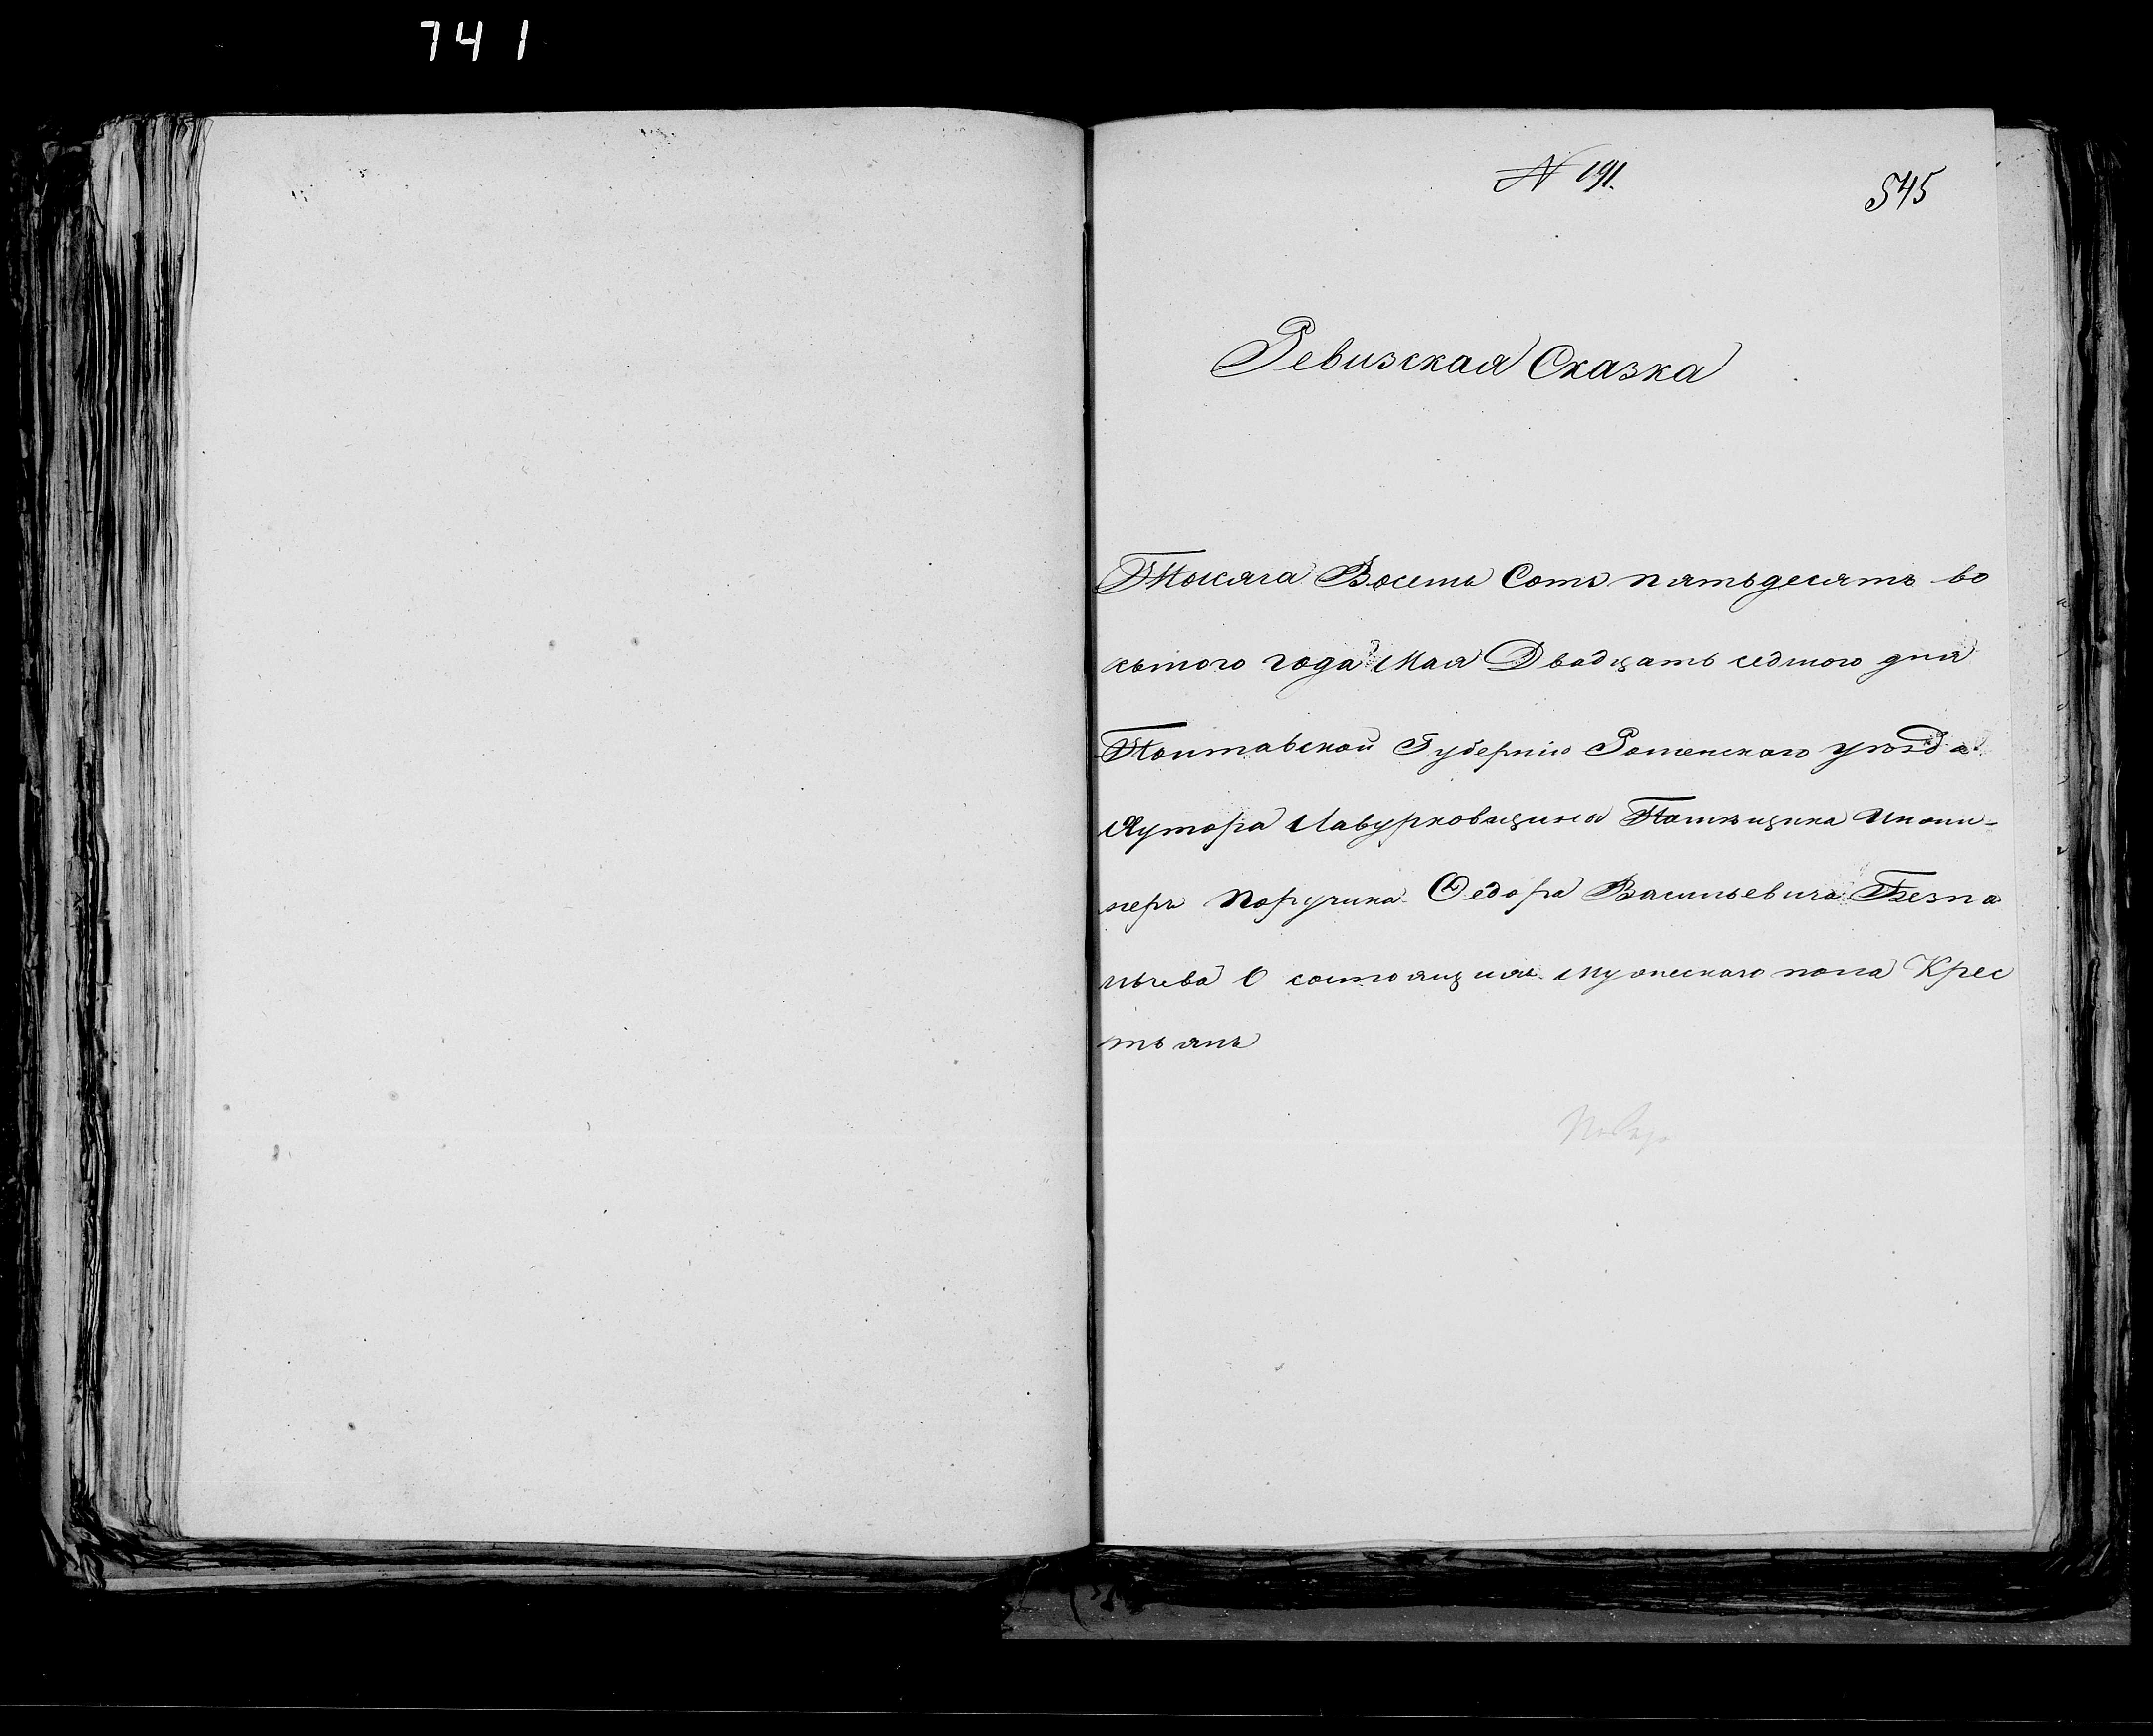 741
N 191.
545
Ревизская Сказка
Тысяча Восемь Сотъ пятьдесятъ во
сьмого года Мая Двадцать седмого дня
Полтавской Губерніи Роменского уѣзда
Хутора Лавурковщина Помѣщика Инжи-
неръ Поручика Федора Васильевича Безпа
льчева О состоящихъ мужескаго пола Крес
тьянъ